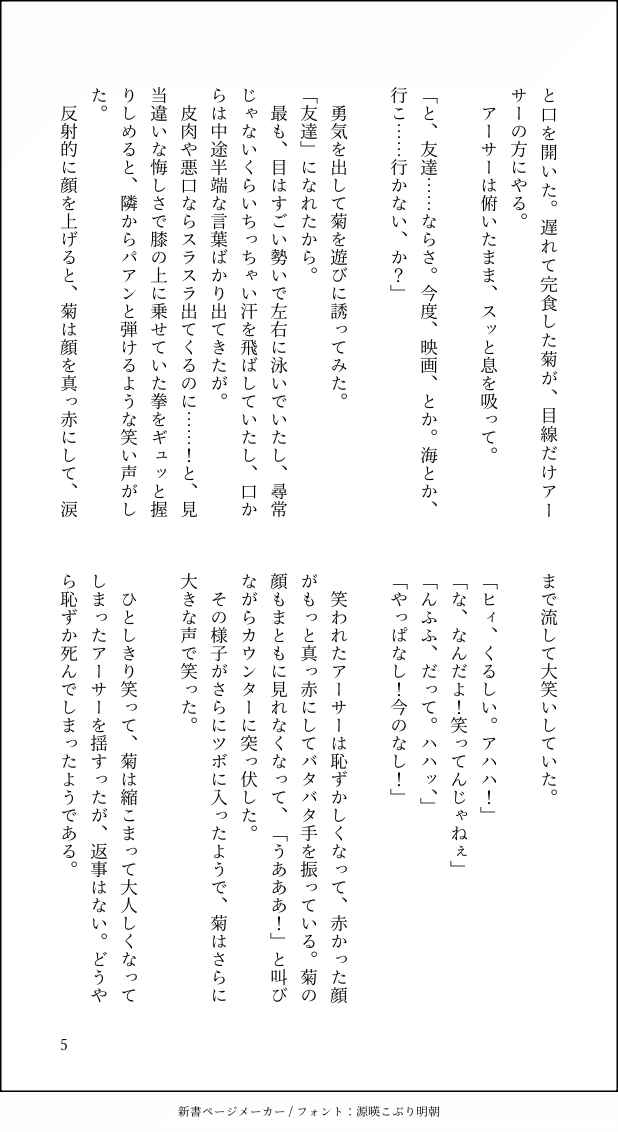 と口を開いた。遅れて完食した菊が、目線だけアー
サーの方にやる。
　アーサーは俯いたまま、スッと息を吸って。
「と、友達……ならさ。今度、映画、とか。海とか、
行こ……行かない、か？」
　勇気を出して菊を遊びに誘ってみた。
「友達」になれたから。
　最も、目はすごい勢いで左右に泳いでいたし、尋常
じゃないくらいちっちゃい汗を飛ばしていたし、口か
らは中途半端な言葉ばかり出てきたが。
　皮肉や悪口ならスラスラ出てくるのに……！と、見
当違いな悔しさで膝の上に乗せていた拳をギュッと握
りしめると、隣からパアンと弾けるような笑い声がし
た。
　反射的に顔を上げると、菊は顔を真っ赤にして、涙
まで流して大笑いしていた。
「ヒィ、くるしい。アハハ！」
「な、なんだよ！笑ってんじゃねぇ」
「んふふ、だって。ハハッ、」
「やっぱなし！今のなし！」
　笑われたアーサーは恥ずかしくなって、赤かった顔
がもっと真っ赤にしてバタバタ手を振っている。菊の
顔もまともに見れなくなって、「うあああ！」と叫び
ながらカウンターに突っ伏した。
　その様子がさらにツボに入ったようで、菊はさらに
大きな声で笑った。
　ひとしきり笑って、菊は縮こまって大人しくなって
しまったアーサーを揺すったが、返事はない。どうや
ら恥ずか死んでしまったようである。
5
新書ページメーカー / フォント：源暎こぶり明朝